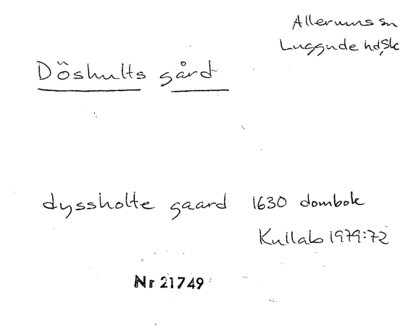 Allerums sn
Luggude hd, Sk
Döshults gård
dyssholte gaard 1630 dombok
Kullabo 1979:72
Nr 21749